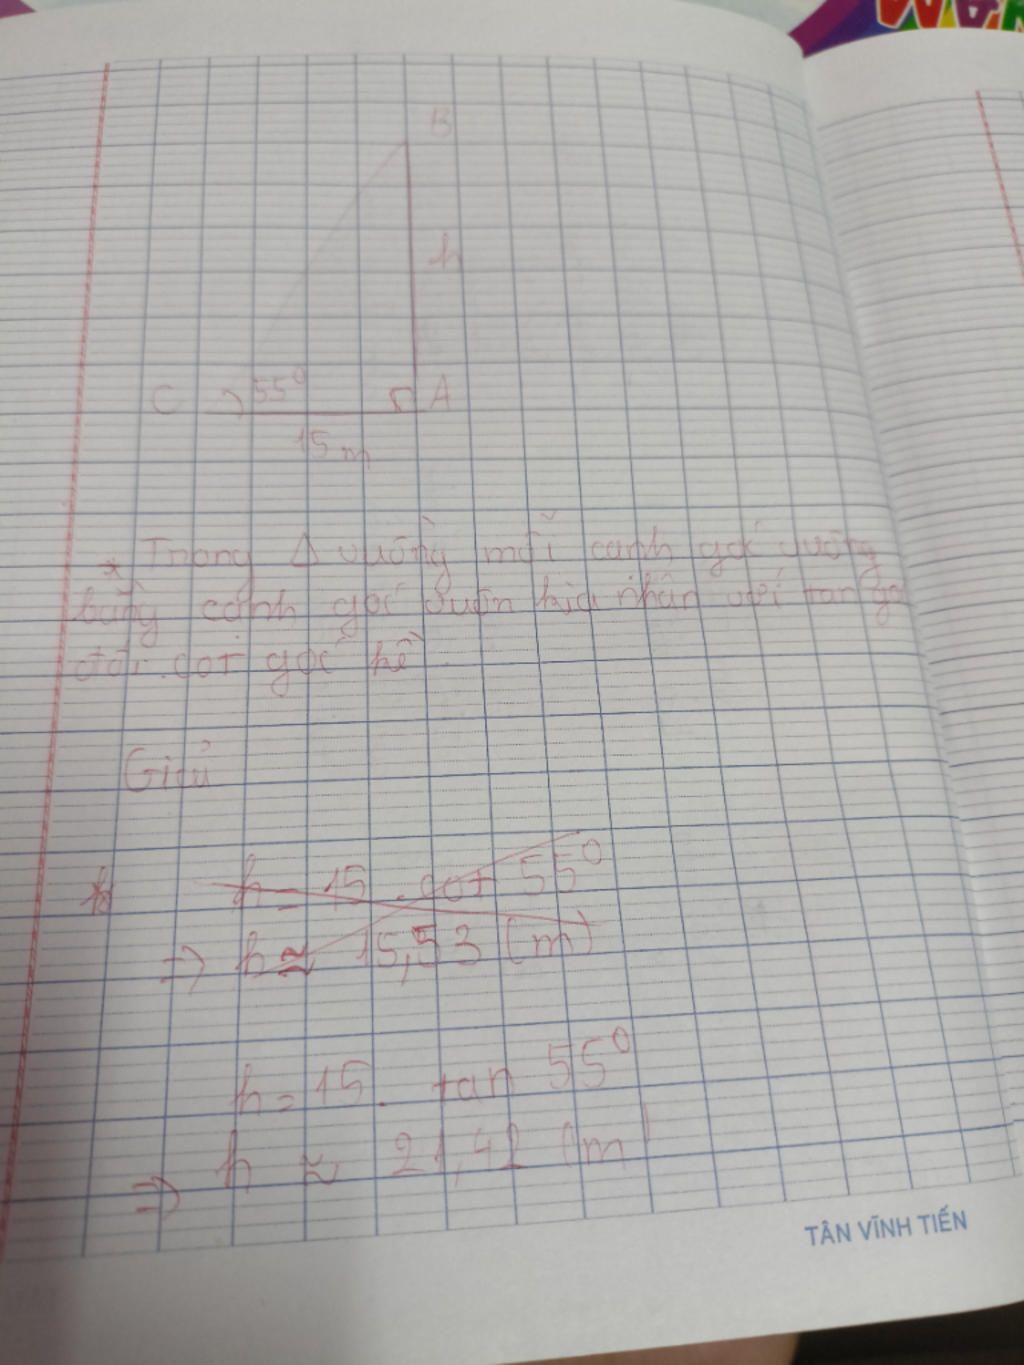 B
h
C 55° A
15 m
* Trong Δ vuông mỗi cạnh góc vuông
bằng cạnh góc vuôn kia nhân với tan góc
đối. cot góc kề
Giải
h = 15 . cot 55°
=> h ≈ 15,53 (m)
h = 15. tan 55°
=> h ≈ 21,42 (m)
TÂN VĨNH TIẾN